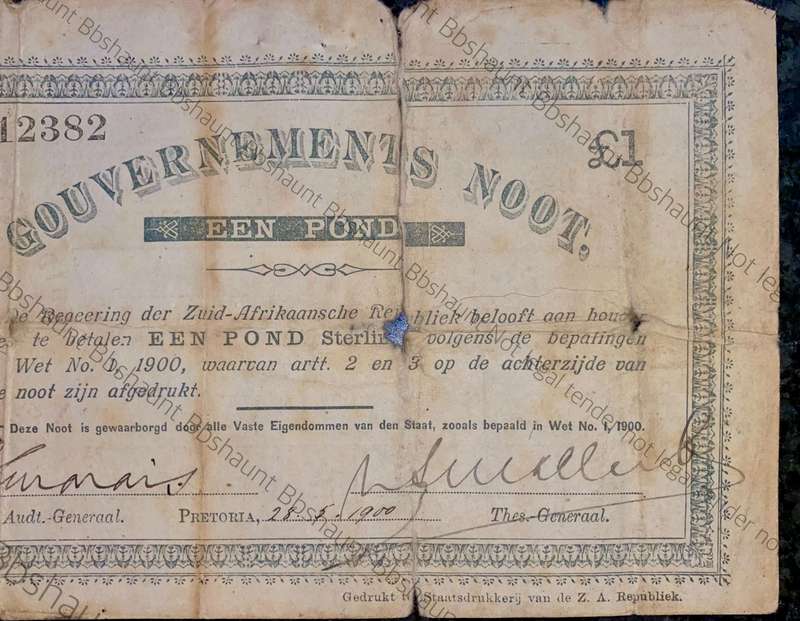 12382
£1
GOUVERNEMENTS NOOT,
EEN POND
Regeering der Zuid-Afrikaansche Republiek belooft aan houder
te betalen EEN POND Sterling volgens de bepalingen
Wet No. 1, 1900, waarvan artt. 2 en 3 op de achterzijde van
noot zijn afgedrukt.
Deze Noot is gewaarborgd door alle Vaste Eigendommen van den Staat, zooals bepaald in Wet No. 1, 1900.
Audt.-Generaal. PRETORIA, 28.5.1900 Thes.-Generaal.
Gedrukt Staatsdrukkerij van de Z. A. Republiek.
Bbshaunt Not legal tender not legal tender